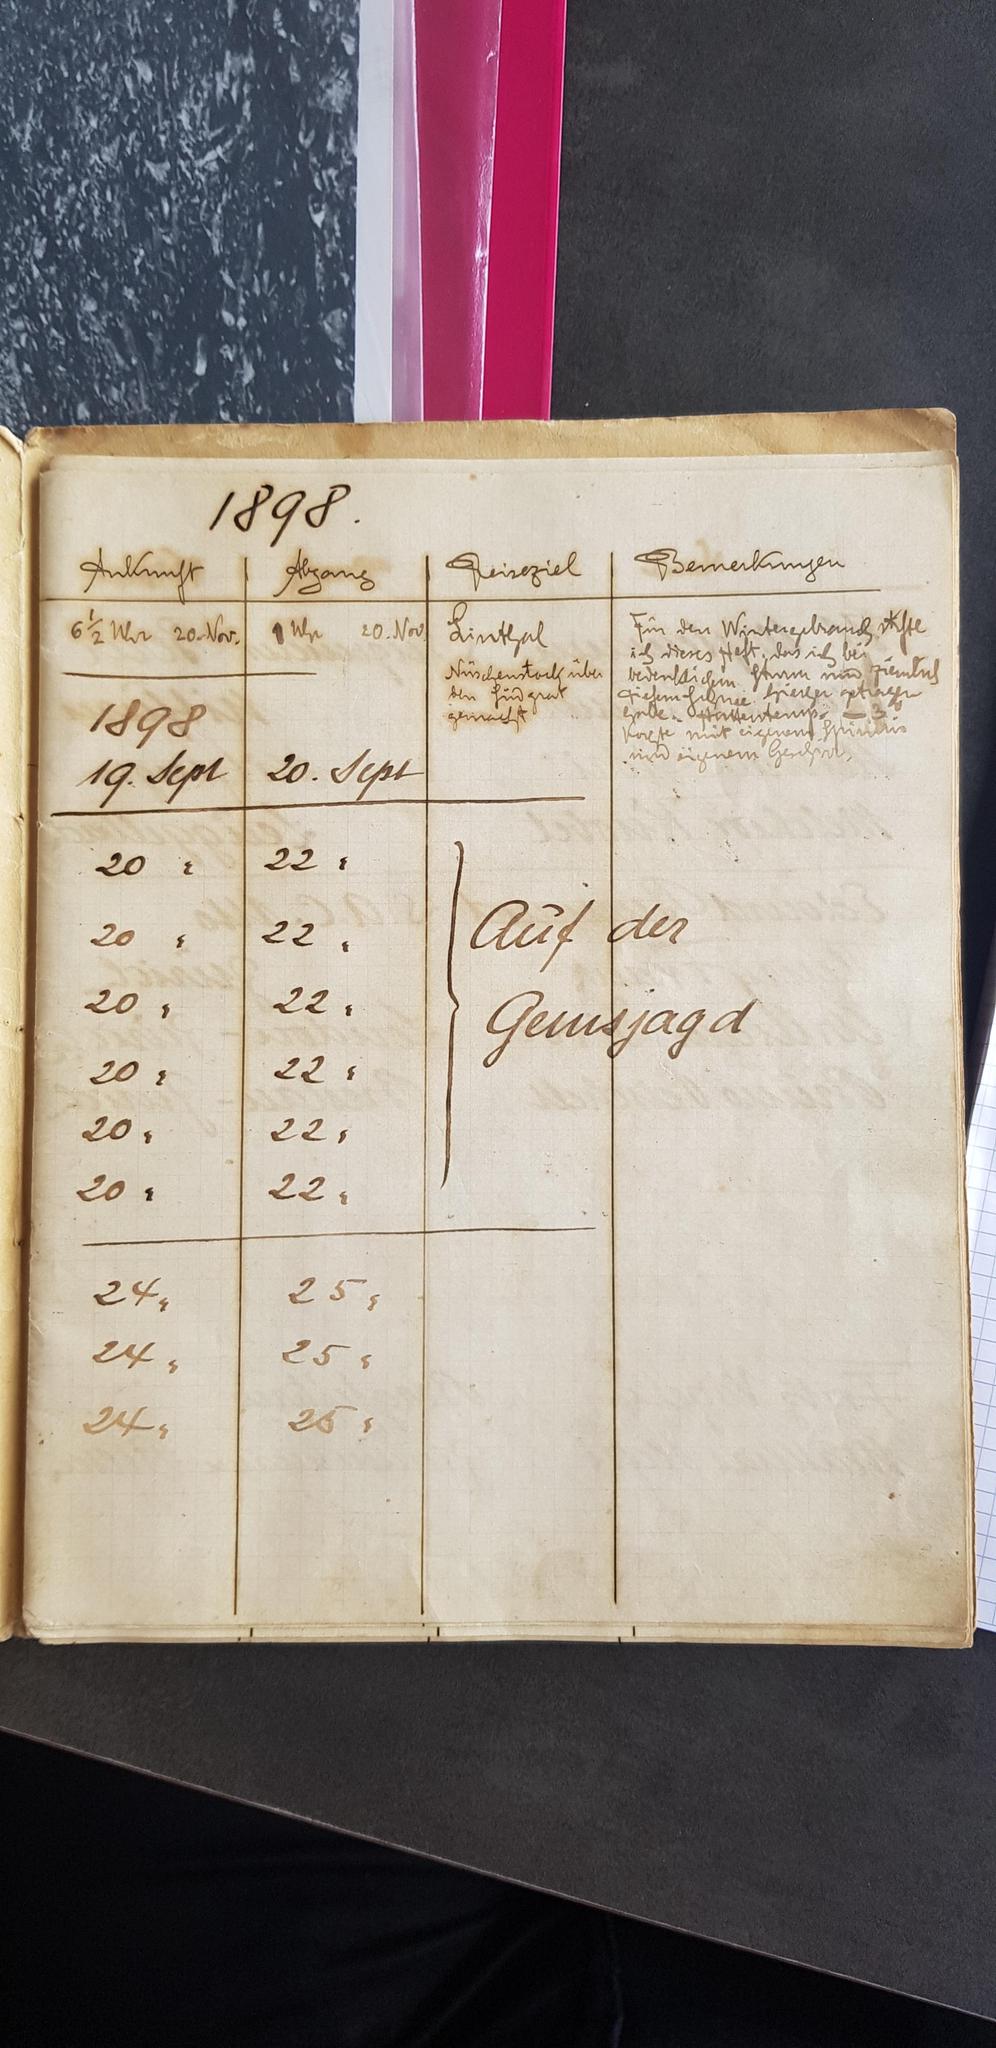 1898.
Ankunft Abgang Reiseziel Bemerkungen
6½ Uhr 20. Nov. 1 Uhr 20. Nov. Linthal Für den Wintergebrauch stifte
ich dieses Heft, das ich bei
Nüschenstock über bedenklichem Sturm und ziemlich
den Südgrat tiefem Schnee hieher getragen
gemacht habe. Hüttentemp. - 3°
Kochte mit eigenem Spiritus
und eigenem Geschirr.
1898
19. Sept 20. Sept
20 " 22 "
20 " 22 " Auf der
20 " 22 " Gemsjagd
20 " 22 "
20 " 22 "
20 " 22 "
24 " 25 "
24 " 25 "
24 " 25 "